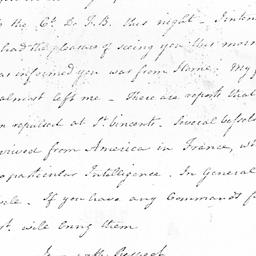 the Ct. De J.B. this night - I inten
had the pleasure of seeing you this morn
as informed you was from Home; My f
almost left me - There are reports that
n repulsed at St. Vincents. Several Vessels
rrived from America in France, wh
o particular Intelligence. In General
ole. If you have any Commands f
st. will bring them